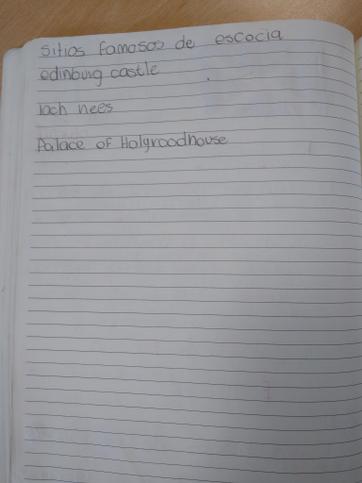 sitios famosos de escocia
edinburg castle
lach nees
Palace of Holyroodhouse